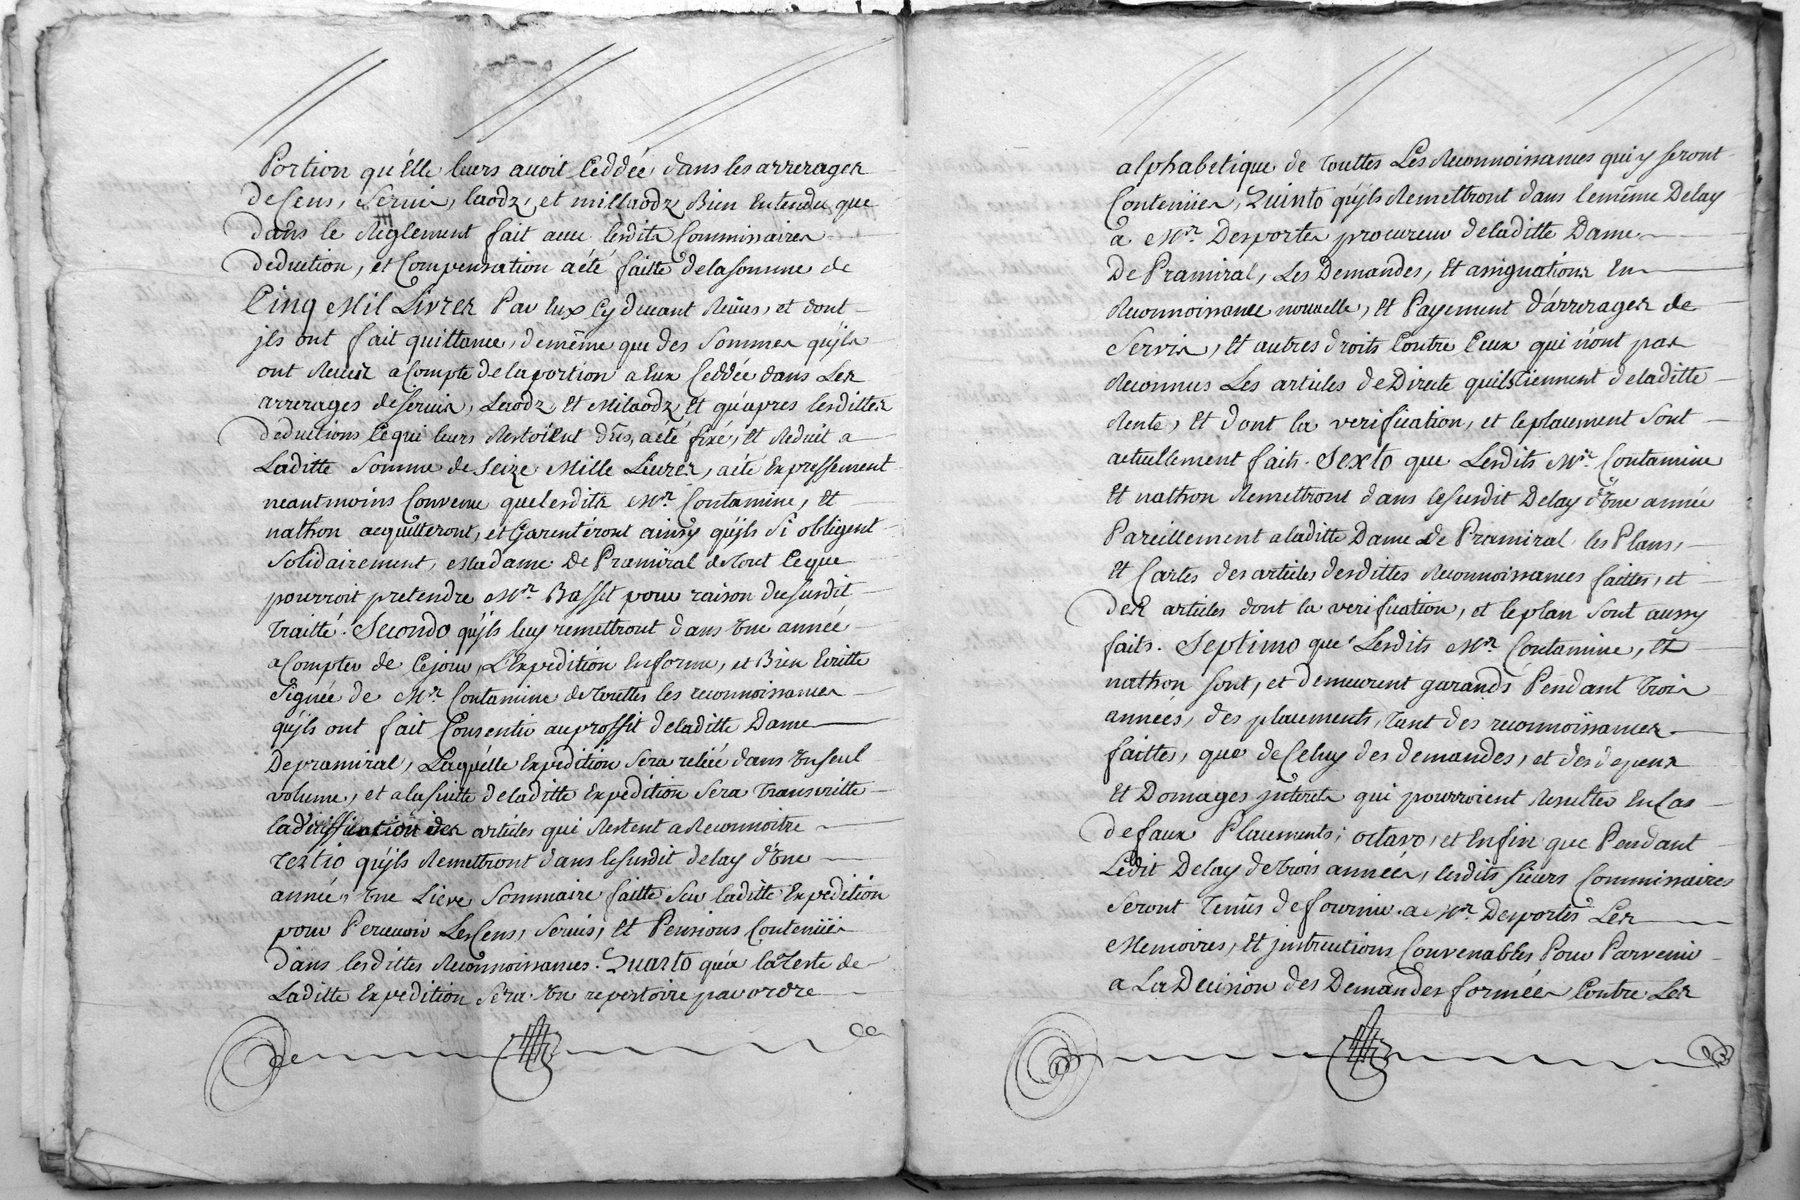 Portion qu'Elle luers avoit Ceddée dans les arrerages
de Cens, Servis, laodz, et millaodz Bien Entendu que
Dans le Reglement fait avec lesdits Commissaires
deduction, et Compensation a été faitte de la somme de
Cinq Mil Livres Par Eux Cy devant Reües, et dont
jls ont fait quittance, de même que des Sommes qu'jls
ont Reües a Compte de la portion a Eux Ceddée dans Les
arrerages de Servis, Laodz Et Milaodz Et qu'apres lesdittes
deductions Ce qui leurs Restoient Dû, a été fixé, Et Reduit a
Laditte Somme de Seize Mille Livres, a été Expressement
neantmoins Convenu que lesdits Mrs Contamine, Et
nathon acquitteront, et Garentéront ainsy qu'jls Si obligent
Solidairement, Madame De Pramiral de tout Ce que
pourroit pretendre Mr. Basset pour raison du Susdit
Traitté. Secondo qu'jls luy remettront dans Une année
a Compter de Ce jour, L'Expedition En forme, et Bien Ecritte
Signée de Mr. Contamine de touttes les reconnoissances
qu'jls ont fait Consentir au proffit de laditte Dame
De pramiral, Laquélle Expedition Sera reliée dans Un Seul
volume, et a la Suitte de laditte Expédition Sera Transcritte
la des articles qui Restent a Reconnoitre
Tertio qu'jls Remettront dans le susdit delay d'Une
année, Une Lieve Sommaire faitte Sur laditte Expedition
pour Percevoir Les Cens, Servis, Et Pensions Contenües
dans lesdittes Reconnoissances. Quarto qu'a la Teste de
Laditte Expedition Séra Un repertoire par ordre
alphabetique de Touttes Les Reconnoissances qui y seront
Contenües, Quinto qu'jls Remettront dans le même Delay
a Mr. Desportes procureur de laditte Dame
De Pramiral, Les Demandes, Et assignations En
Reconnoissance nouvelle, Et Payement d'arrerages de
Servis, Et autres droits Contre Ceux qui n'ont pas
Reconnus Les articles de Directe quils tiennent de laditte
Rente, Et dont la verification, et le placement Sont
actuellement faits. Sexto que Lesdits Mrs. Contamine
Et nathon Remettront dans le susdit Delay d'Une année
Pareillement a laditte Dame De Pramiral les Plans,
Et Cartes des articles desdittes Reconnoissances faittes, et
des articles dont la verification, et le plan Sont aussy
faits. Septimo que Lesdits Mrs Contamine, Et
nathon Sont, et demeurent garands Pendant Trois
années, des placements, tant des reconnoissances
faittes, que de Celuy des demandes, et des dépens
Et Domages jnterets qui pourroient Resulter En Cas
de faux Placements; octavo, et Enfin que Pendant
Ledit Delay de Trois années, lesdits Sieurs Commissaires
Seront Tenûs de fournir a Mr. Desportes Les
Memoires, Et jnstructions Convenables Pour Parvenir
a La Decision des Demandes formées Contre Les